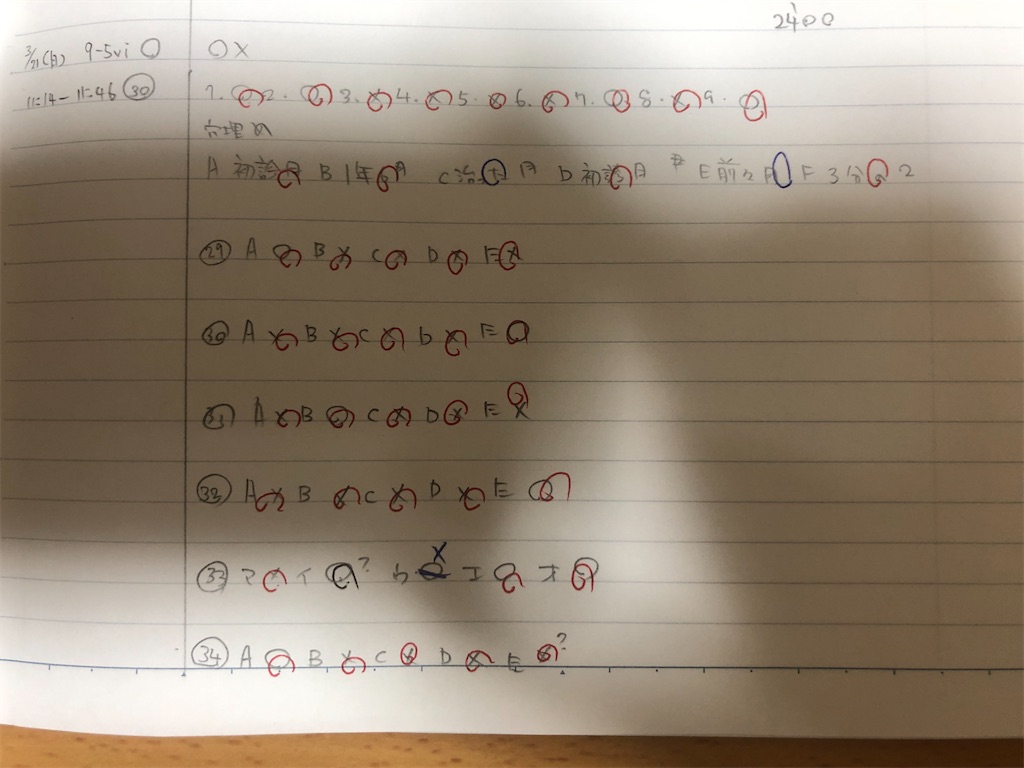 2400
3/21(日) 9-5vi ○ ○×
11:14-11:46 ㉚ 1. ○ 2. ○ 3. × 4. × 5. × 6. 7. ○ 8. × 9. ○
合理的
A 初診月 B 1年 月 C 治 月 D 初診月 E 前々月 F 3分の2
㉙ A ○ B × C ○ D × E ×
㉚ A × B × C ○ D × E ○
㉛ A × B ○ C × D × E ×
㉜ A × B × C × D × E ○
㉝ ア イ ○? ウ × エ ○ オ ○
㉞ A ○ B × C × D × E ?